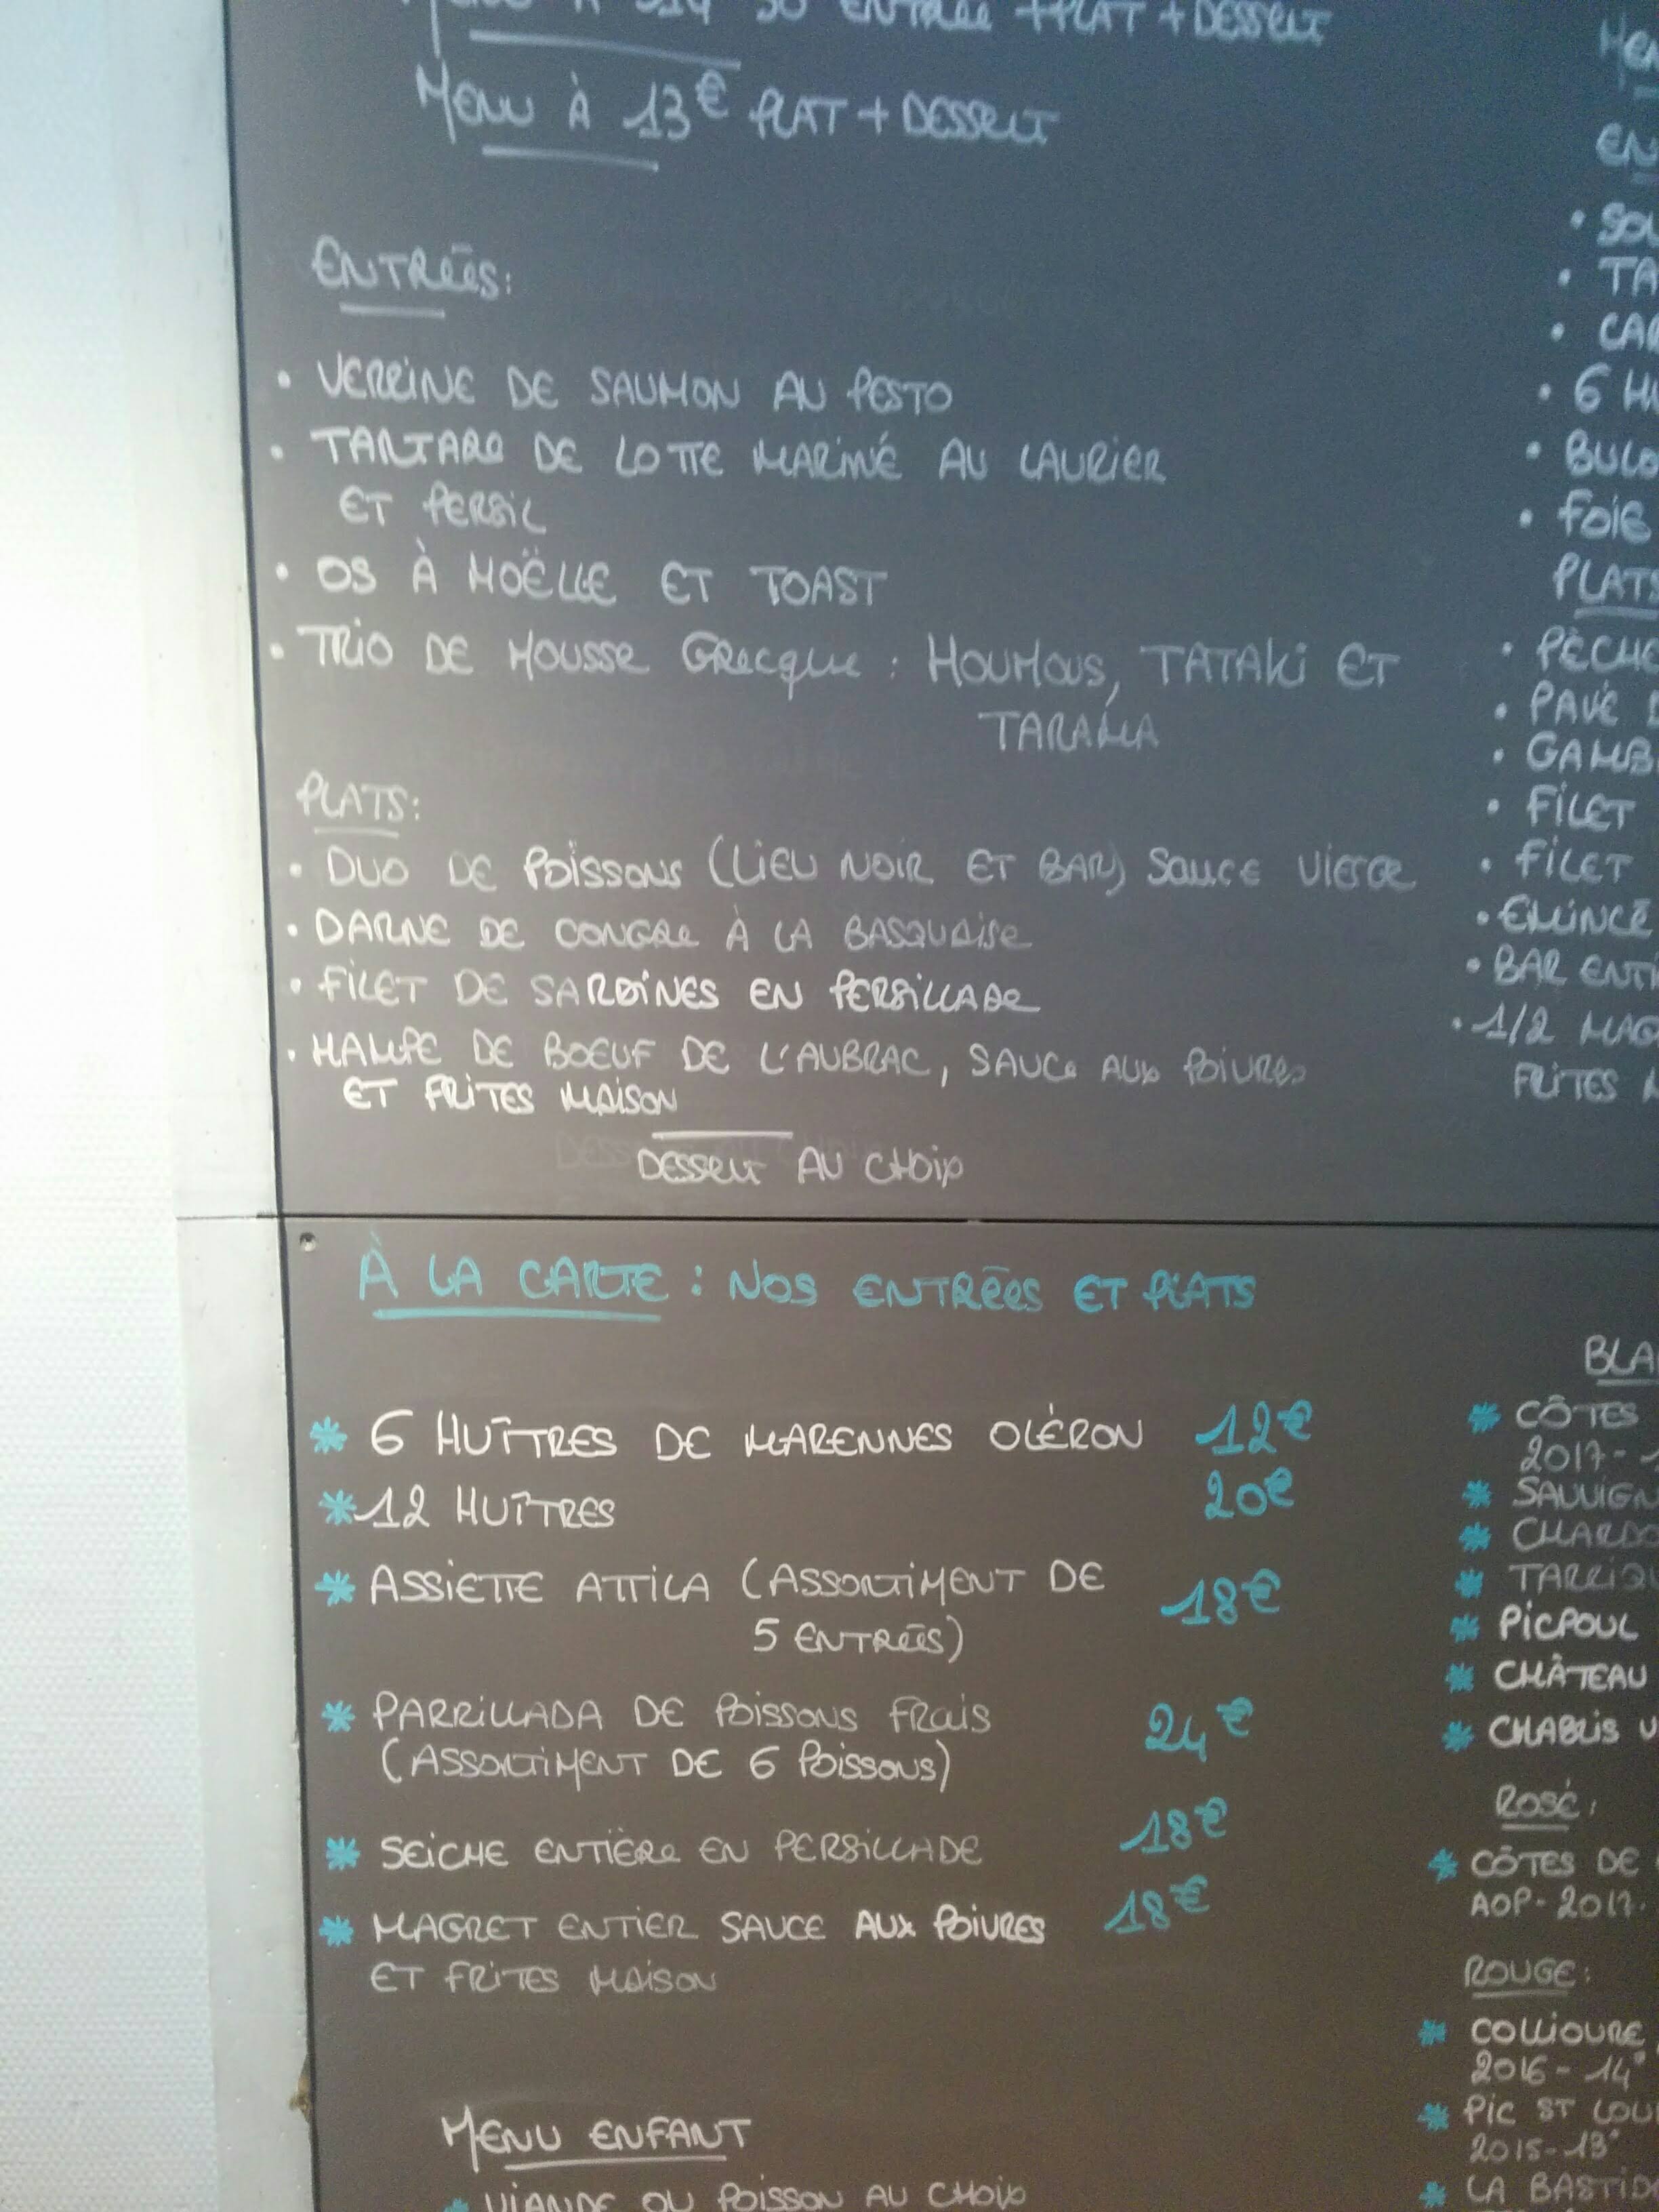 ENTRÉE + PLAT + DESSERT
MENU À 13€ PLAT + DESSERT
ENTRÉES:
• VERRINE DE SAUMON AU PESTO
• TARTARE DE LOTTE MARINÉ AU LAURIER
ET PERSIL
• OS À MOËLLE ET TOAST
• TRIO DE MOUSSE GRECQUE : HOUMOUS, TATAKI ET
TARAMA
PLATS:
• DUO DE POISSONS (LIEU NOIR ET BAR) SAUCE VIERGE
• DARNE DE CONGRE À LA BASQUAISE
• FILET DE SARDINES EN PERSILLADE
• HAMPE DE BOEUF DE L'AUBRAC, SAUCE AUX POIVRES
ET FRITES MAISON
DESSERT AU CHOIX
À LA CARTE : NOS ENTRÉES ET PLATS
* 6 HUÎTRES DE MARENNES OLÉRON 12€
* 12 HUÎTRES 20€
* ASSIETTE ATTILA (ASSORTIMENT DE
5 ENTRÉES) 18€
* PARRILLADA DE POISSONS FRAIS
(ASSORTIMENT DE 6 POISSONS) 24€
* SEICHE ENTIÈRE EN PERSILLADE 18€
* MAGRET ENTIER SAUCE AUX POIVRES 18€
ET FRITES MAISON
MENU ENFANT
* VIANDE OU POISSON AU CHOIX
• 6
• FOIE
PLATS
• PAVÉ
• FILET
• FILET
• EMINCÉ
• BAR
• 1/2
FRITES
* CÔTES
2017 -
* PICPOUL
* CHÂTEAU
* CHABLIS
ROSÉ:
* CÔTES DE
AOP - 2017.
ROUGE:
* COLLIOURE
2016 - 14°
* PIC ST
2015 - 13°
* LA